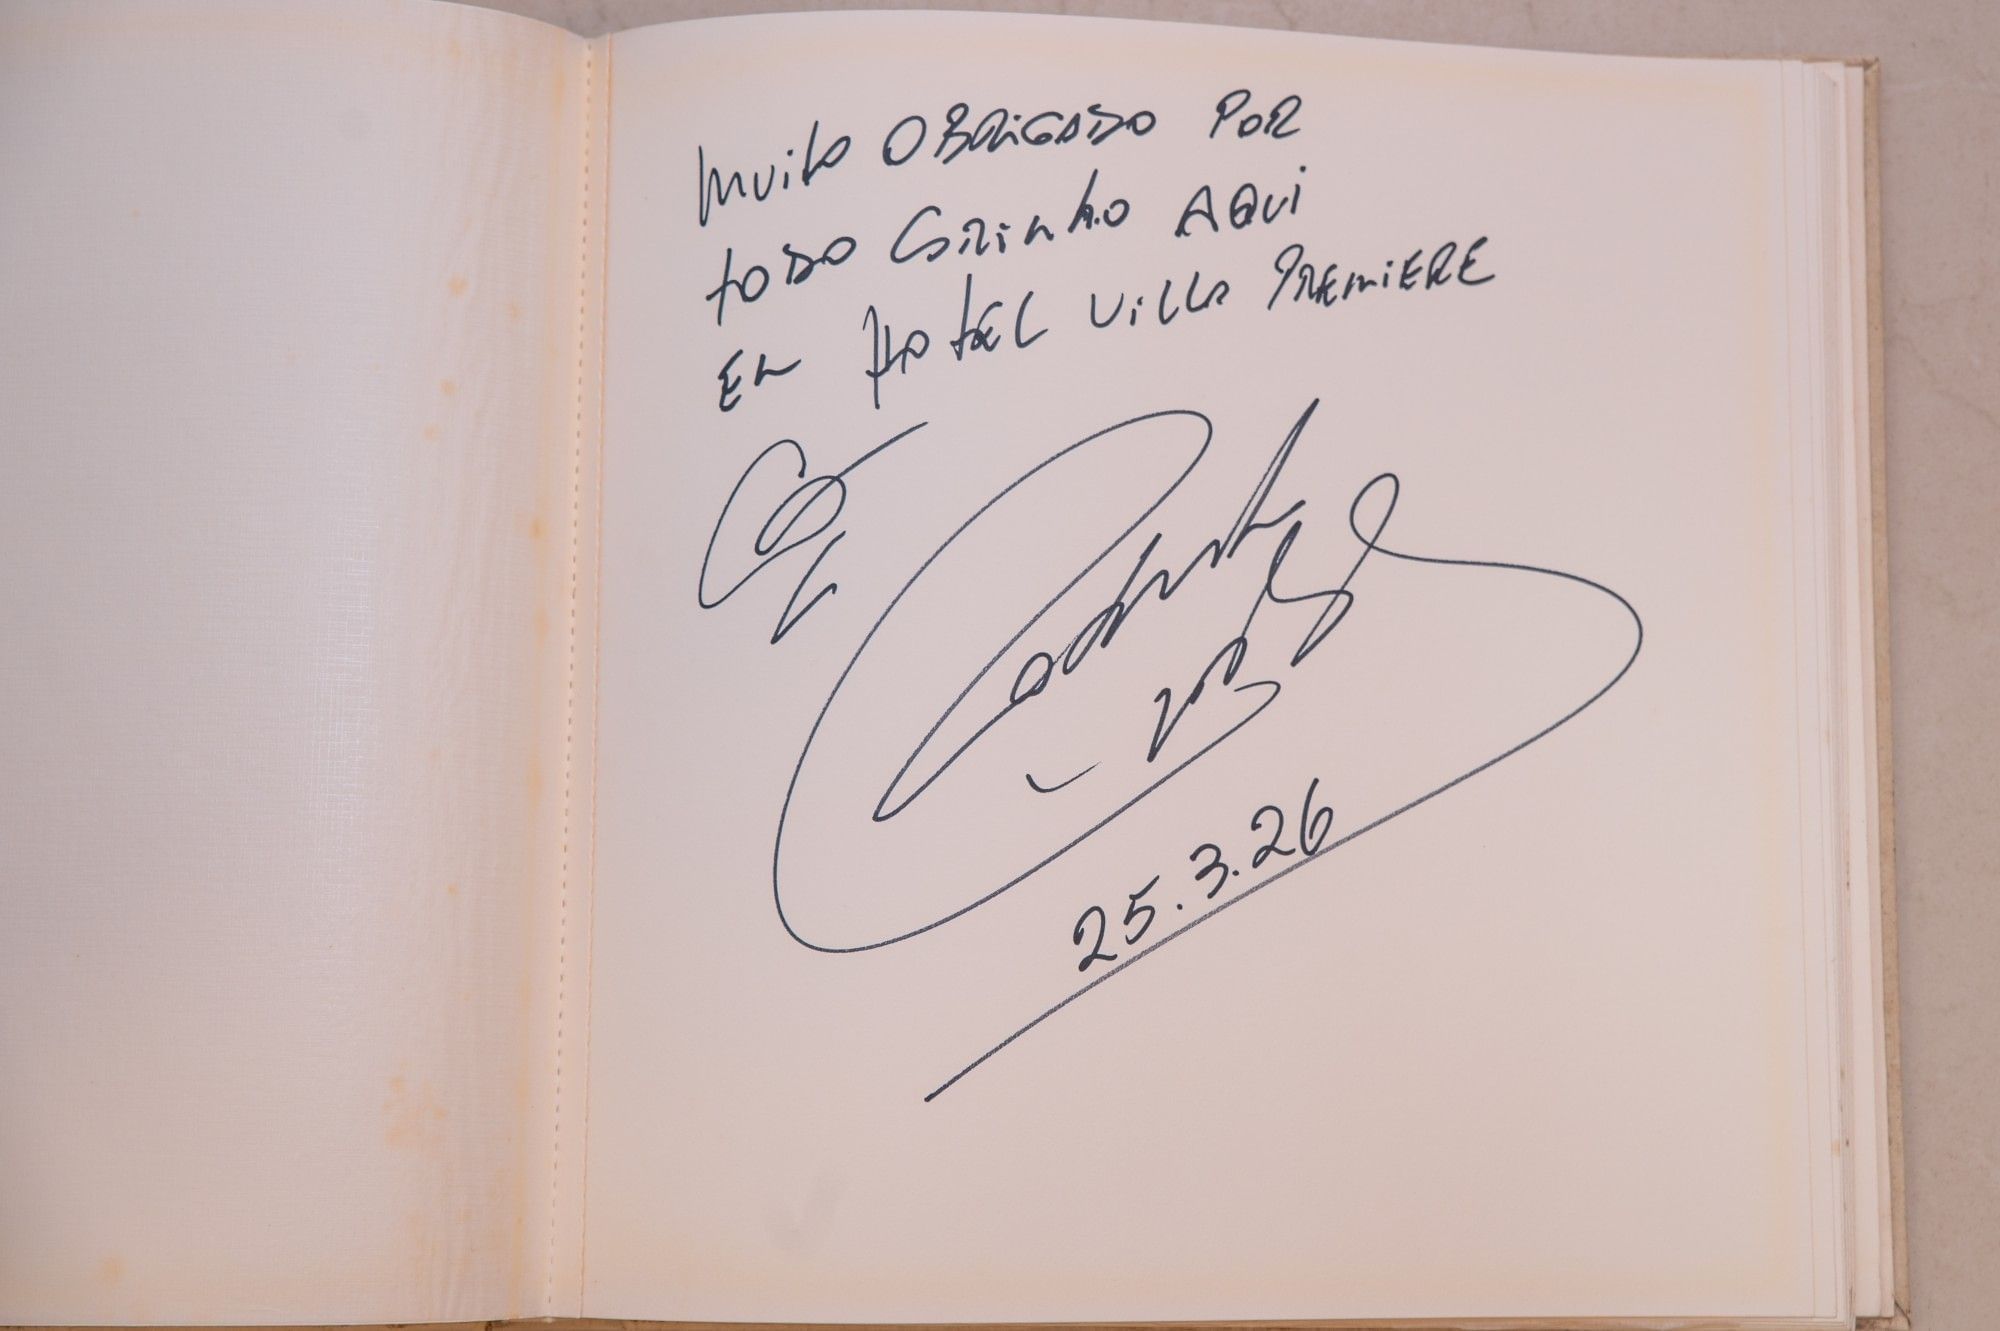 Muito OBRIGADO POR
toDO CARiNhO AQUi
EM HOtEL ViLLA PREMiERE
25.3.26